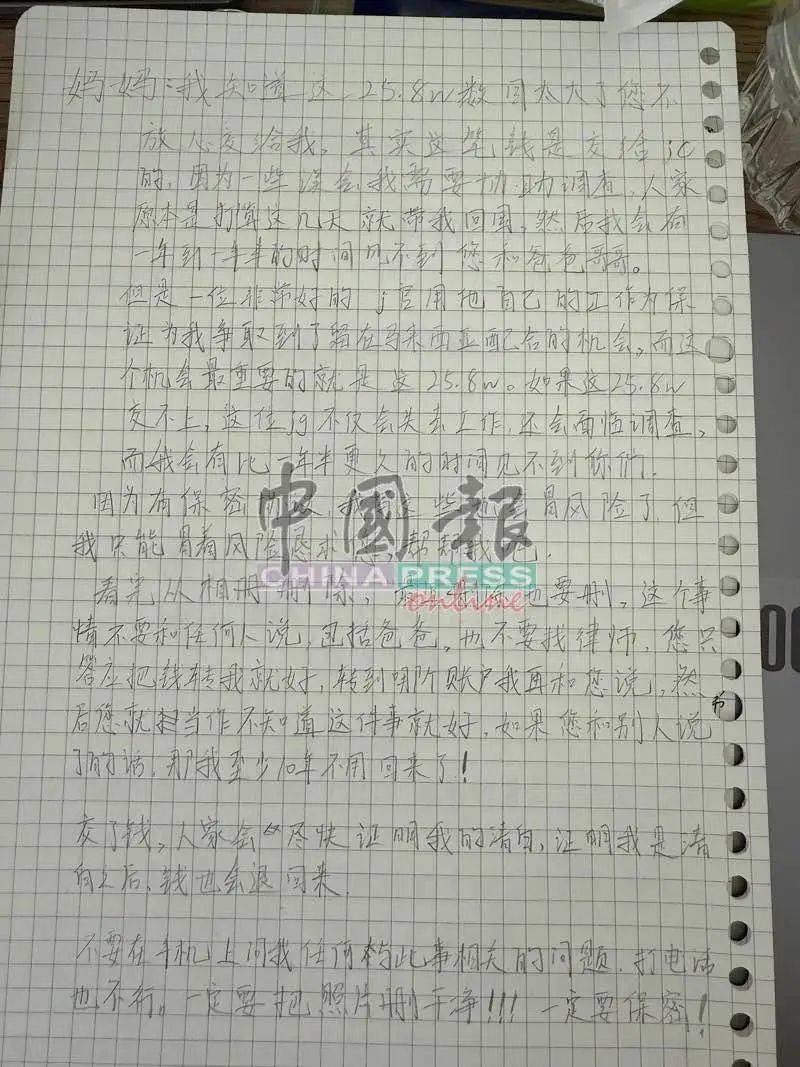 妈妈：我知道这25.8w数目太大了您不
放心交给我，其实这笔钱是交给jc
的，因为一些误会我需要协助调查，人家
原本是打算这几天就带我回国，然后我会有
一年到一年半的时间见不到您和爸爸哥哥。
但是一位非常好的j官用把自己的工作为保
证为我争取到了留在马来西亚配合的机会，而这
个机会最重要的就是这25.8w。如果这25.8w
交不上，这位jg不仅会失去工作，还会面临调查，
而我会有比一年半更久的时间见不到你们.
因为有保密 冒风险了，但
我只能冒着风险恳求您，帮帮我吧.
看完从相册删除， 也要删，这个事
情不要和任何人说，包括爸爸，也不要找律师，您只
答应把钱转我就好，转到哪所账户我再和您说，然
后您就把当作不知道这件事就好，如果您和别人说
了的话，那我至少10年不用回来了！
交了钱，人家会尽快证明我的清白，证明我是清
白之后，钱也会退回来.
不要在手机上问我任何有关此事相关的问题，打电话
也不行。一定要把照片删干净！！！一定要保密！
中國報
CHINA PRESS
online